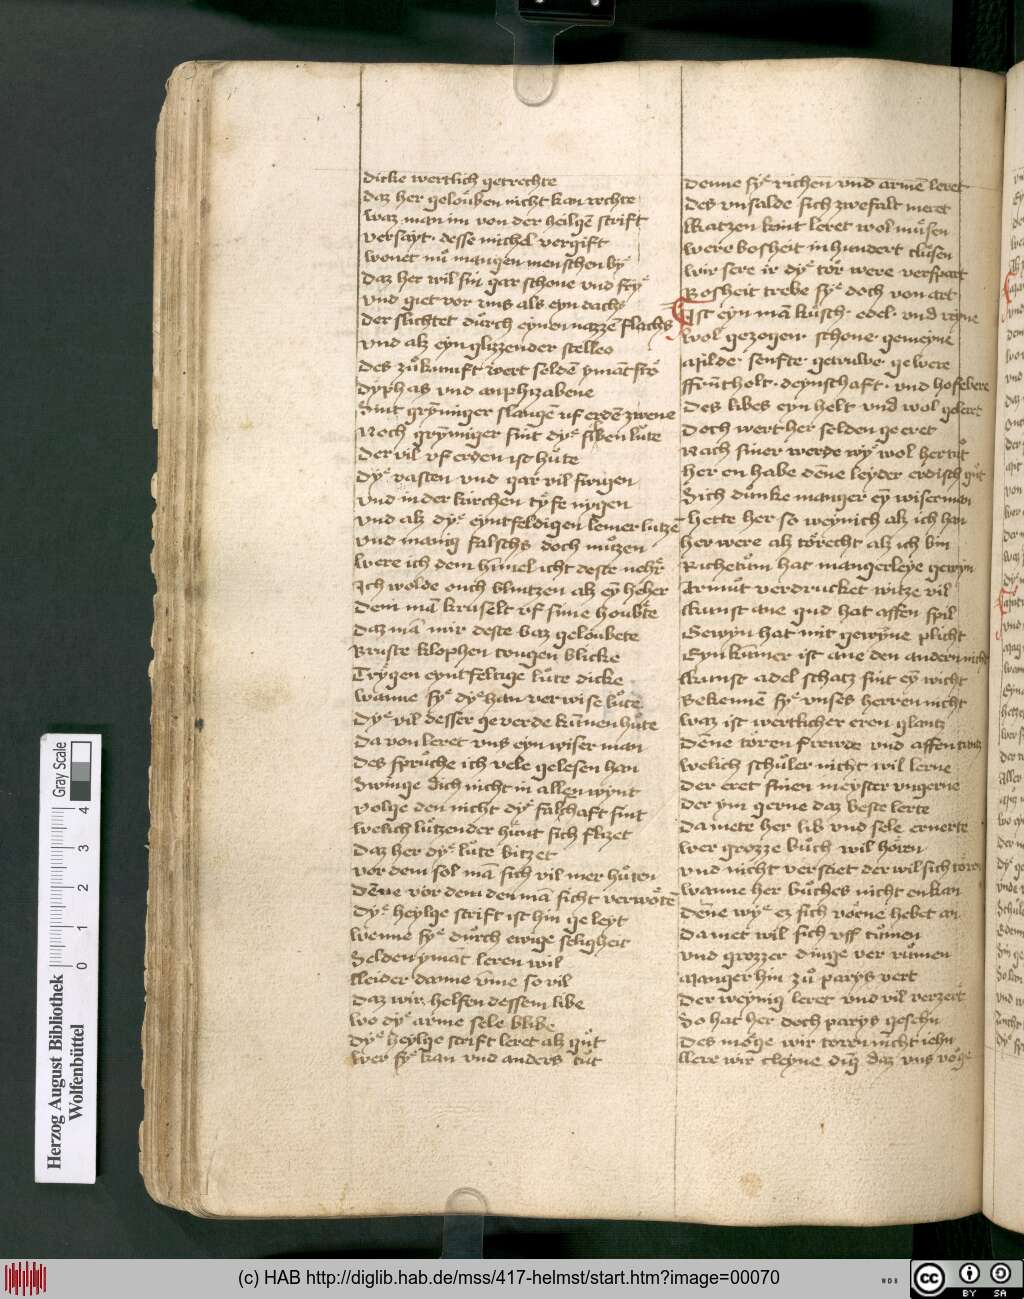 dicke wertlich getrechte
daz her gelouben nicht kan rechte
waz man im von der heilgē scrift
versayt. desse michel vergift
wonet nů mangen menschen by
daz her wil sin gar schone vnd fry
vnd get vor vns als eyn dachs
der slichtet důrch eynen nazzē flachs
vnd alz eyn glizzender stelleo
des zůkumft wert seldē ymāt fro
dyphas vnd amphizabene
Sint grymiger slangē uf erdē zwene
Noch grymiger sint dye siben lůte
der vil vf erden ist hůte
dye vasten vnd gar vil swigen
vnd in der kirchen tyfe nygen
vnd alz dye eyntfeldigen lemer lutzē
vnd manig falschs doch můzen
were ich dem himel icht deste nehr
Ich wolde ouch blintzen alz eȳ heher
dem mā kruselt vf sine houbte
daz mā mir deste baz geloubete
Bruste klophen tougen blicke
Trygen eyntfeltige lůte dicke
wanne sye dye han verwise lůte
dye vil besser geverde kūnen hůte
da von leret vns eyn wiser man
des sprůche ich vele gelesen han
Swinge dich nicht in allen wynt
volge den nicht dye falschaft sint
welich lůtzender hůnt sich flizet
daz her dye lůte bitzet
vor dem sol mā sich vil mer hůten
dēne vor dem den mā sicht verwôtē
dye heylge scrift ist hin geleyt
wenne sye důrch ewige seligheit
Selden ymāt leren wil
lleider danne vme so vil
daz wir helfen dessem libe
wo dye arme sele blibe
dye heylge scrift leret alz gůt
wer sye kan vnd anders tůt
denne sye richen vnd armē leret
des vnsalde sich zwefalt meret
Katzen kint leret wol můsen
were bosheit in hundert clůsen
wir sere ir dye tôr were verspart
Bosheit trebe sye doch von art
Ist eyn mā kůsch. edel. vnd reyne
wol gezogen. schone. gemeyne
Milde. senfte. getruwe. gewere
ffrůntholt. deynschaft. vnd hofebere
des libes eyn helt vnd wol geleret
doch wert her selden geeret
Nach siner werde wye wol her tůt
her en habe dēne leyder erdisch gůt
Sich důnke manger eȳ wiser man
Hette her so weynich alz ich han
her were alz tôrecht alz ich bin
Richetům hat mangerleye gewyn
Armůt verdrucket witze vil
Kunst ane gud hat affen spil
Gewyn hat mit gewyne plicht
Eyn kůmer ist ane den andern nicht
Kunst adel schatz sint eȳ wicht
Bekennē sye vnsēs herren nicht
waz ist wertlicher eren glantz
dēne tôren freude vnd affen tantz
welich schůler nicht wil lerne
der eret sinen meyster vngerne
der ym gerne daz beste lerte
da mete her lib vnd sele ernerte
wer grozze bůch wil hôren
vnd nicht verstet der wil sich tôren
wanne her bůches nicht enkan
dēne wye ez sich vorne hebet an
da met wil sich vff tůmen
vnd grozzer dinge ver růmen
Manger hin zů parys vert
der weynig leret vnd vil verzert
So hat her doch parys gesehn
des môge wir toren nicht iehn
llere wir cleyne dīg daz vns vôge
Herzog August Bibliothek
Wolfenbüttel
0 1 2 3 4
Gray Scale
(c) HAB http://diglib.hab.de/mss/417-helmst/start.htm?image=00070
WDB
cc BY SA